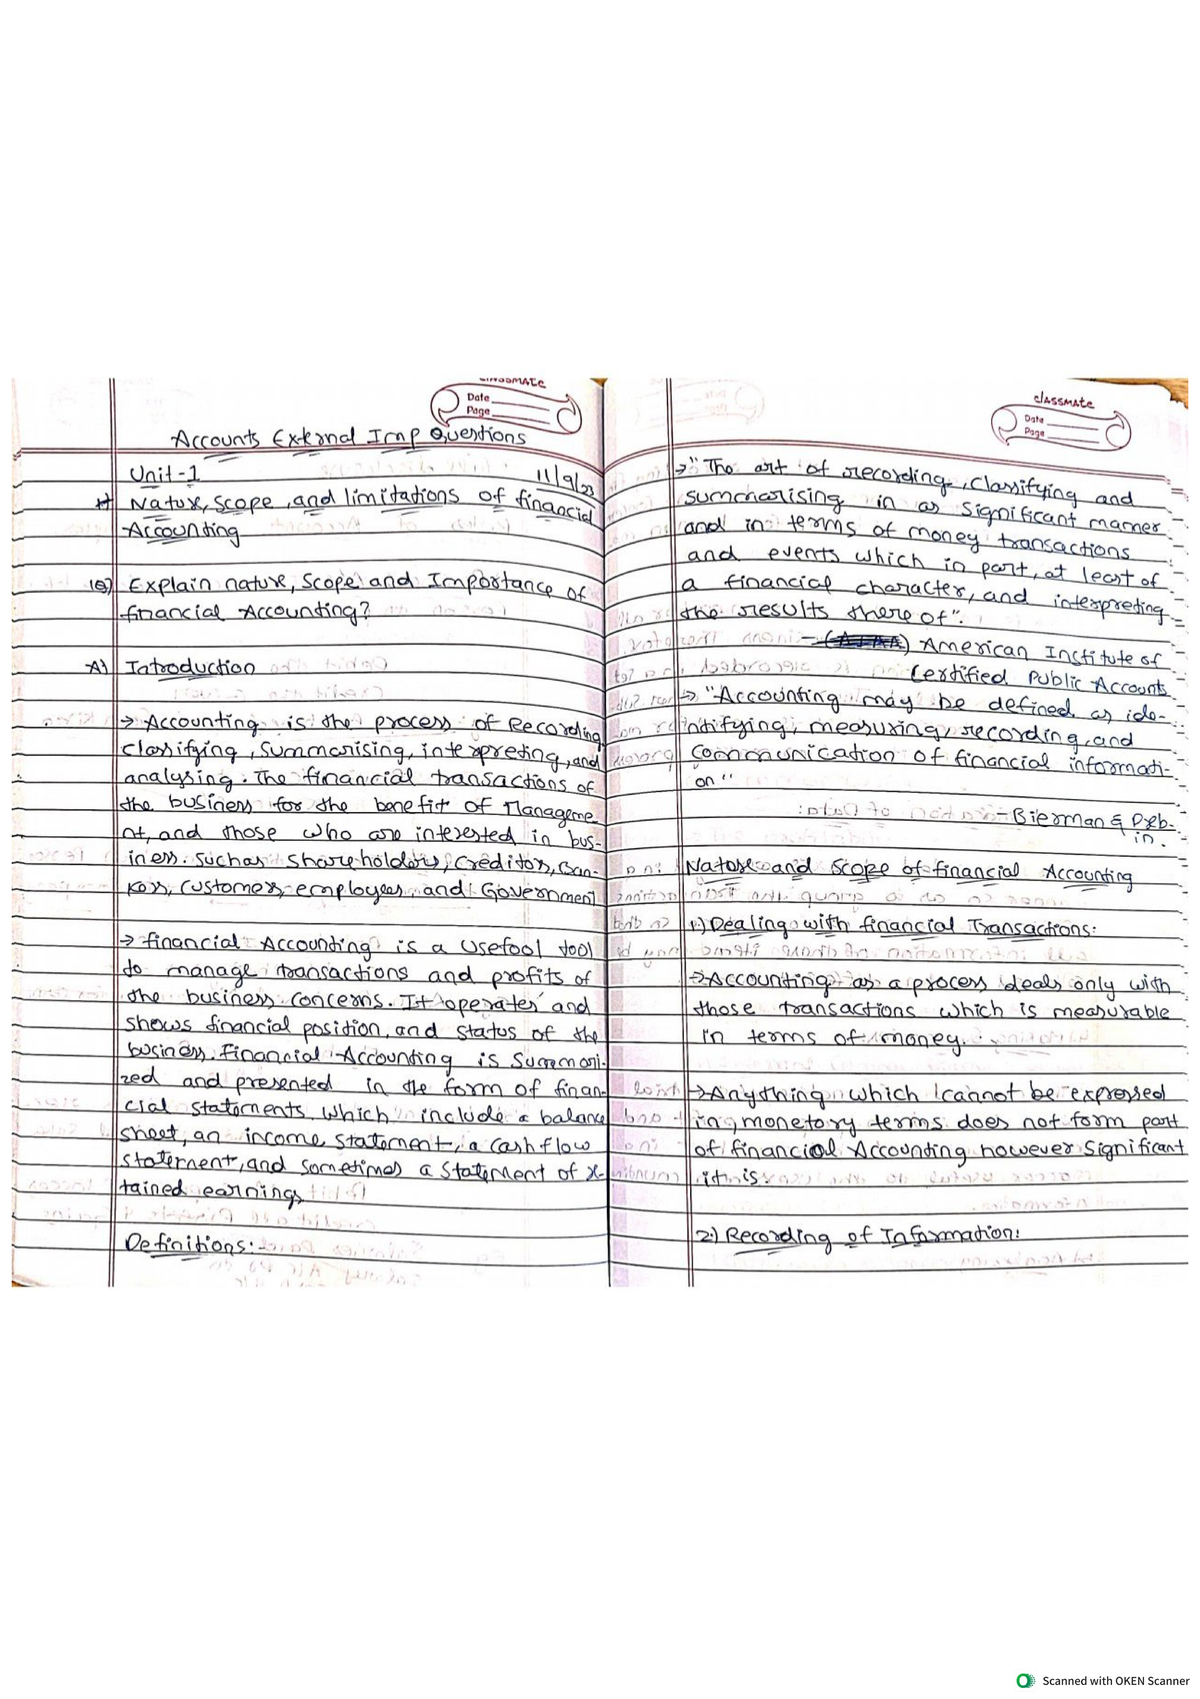 classmate
Date
Page
Accounts External Imp Questions
Unit-1 11/9/23
Nature, Scope, and limitations of financial
Accounting
1Q) Explain nature, Scope and Importance of
financial Accounting?
A) Introduction
→ Accounting is the process of Recording
classifying, Summarising, interpreting, and
analysing. The financial transactions of
the business for the benefit of Manageme-
nt, and those who are interested in bus-
iness. Such as Shareholders, Creditors, Ban-
kers, Customers, employees, and Government
→ financial Accounting is a Usefool tool
to manage transactions and profits of
the business concerns. It operates and
shows financial position, and status of the
business. Financial Accounting is Summari-
zed and presented in the form of finan-
cial statements which include a balance
sheet, an income statement, a cash flow
statement, and sometimes a statement of re-
tained earnings
Definitions:-
classmate
Date
Page
→ "The art of recording, Classifying and
summarising in a significant manner
and in terms of money transactions
and events which in part, at least of
a financial character, and interpreting
the results there of".
- American Institute of
Certified Public Accounts
→ "Accounting may be defined as ide-
ntifying, measuring, recording, and
Communication of financial informati-
on"
- Bierman & Dreb-
in.
Nature and Scope of financial Accounting
1) Dealing with financial Transactions:
→ Accounting as a process deals only with
those transactions which is measurable
in terms of money.
→ Anything which cannot be expressed
in monetory terms does not form part
of financial Accounting however significant
it is.
2) Recording of Information:
Scanned with OKEN Scanner